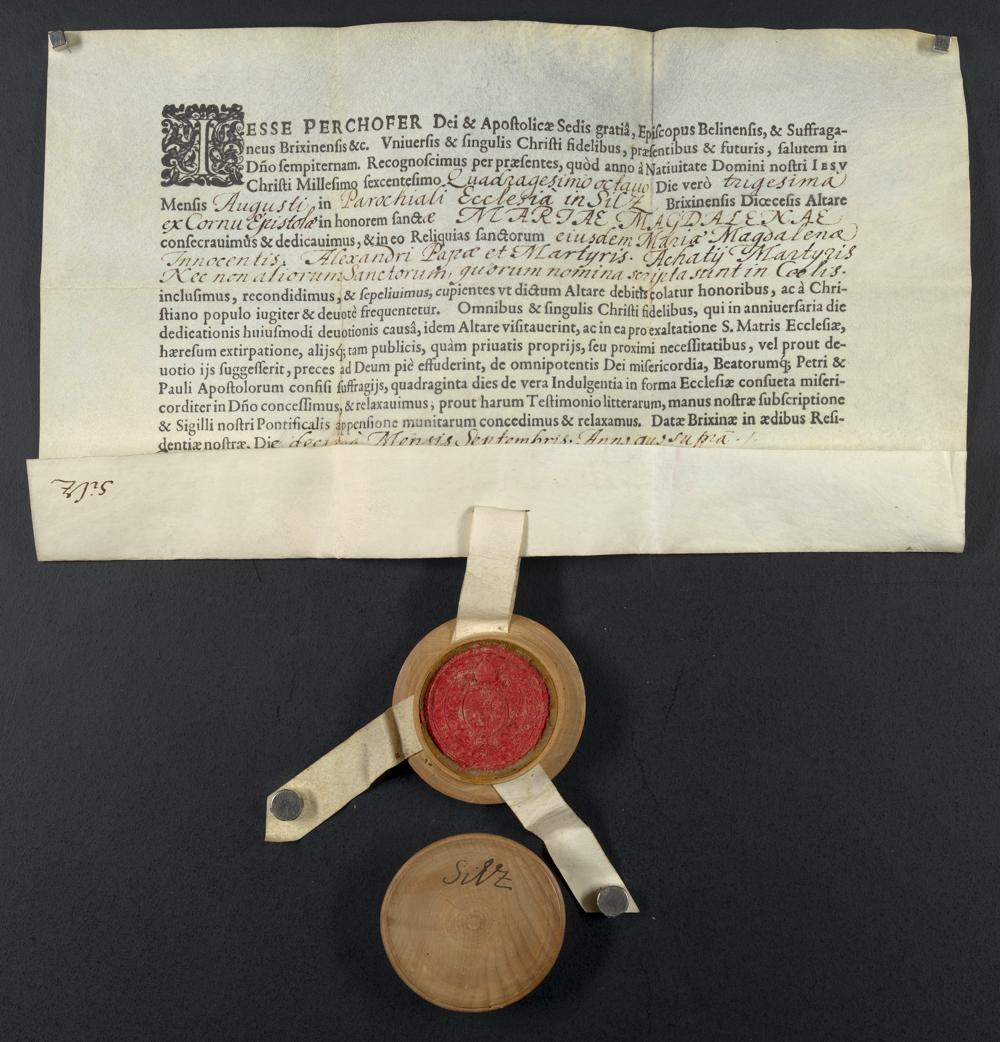 IESSE PERCHOFER Dei & Apostolicæ Sedis gratiâ, Episcopus Belinensis, & Suffraga-
neus Brixinensis &c. Vniuersis & singulis Christi fidelibus, præsentibus & futuris, salutem in
Dño sempiternam. Recognoscimus per præsentes, quòd anno à Natiuitate Domini nostri IESV
Christi Millesimo sexcentesimo Quadragesimo octauo Die verò trigesima
Mensis Augusti, in Parochiali Ecclesia in Silz Brixinensis Diœcesis Altare
ex Cornu Epistolæ in honorem sanctæ MARIAE MAGDALENAE
consecrauimus & dedicauimus, & in eo Reliquias sanctorum eiusdem Mariæ Magdalenæ
Innocentis. Alexandri Papæ et Martyris. Achatij Martyris
Nec non aliorum Sanctorum, quorum nomina scripta sunt in Coelis.
inclusimus, recondidimus, & sepeliuimus, cupientes vt dictum Altare debitis colatur honoribus, ac à Chri-
stiano populo iugiter & deuotè frequentetur. Omnibus & singulis Christi fidelibus, qui in anniuersaria die
dedicationis huiusmodi deuotionis causâ, idem Altare visitauerint, ac in ea pro exaltatione S. Matris Ecclesiæ,
hæresum extirpatione, alijsq; tam publicis, quàm priuatis proprijs, seu proximi necessitatibus, vel prout de-
uotio ijs suggesserit, preces ad Deum piè effuderint, de omnipotentis Dei misericordia, Beatorumq; Petri &
Pauli Apostolorum confisi suffragijs, quadraginta dies de vera Indulgentia in forma Ecclesiæ consueta miseri-
corditer in Dño concessimus, & relaxauimus; prout harum Testimonio litterarum, manus nostræ subscriptione
& Sigilli nostri Pontificalis appensione munitarum concedimus & relaxamus. Datæ Brixinæ in ædibus Resi-
dentiæ nostræ. Die decima Mensis Septembris. Anno quo supra
Silz
Silz